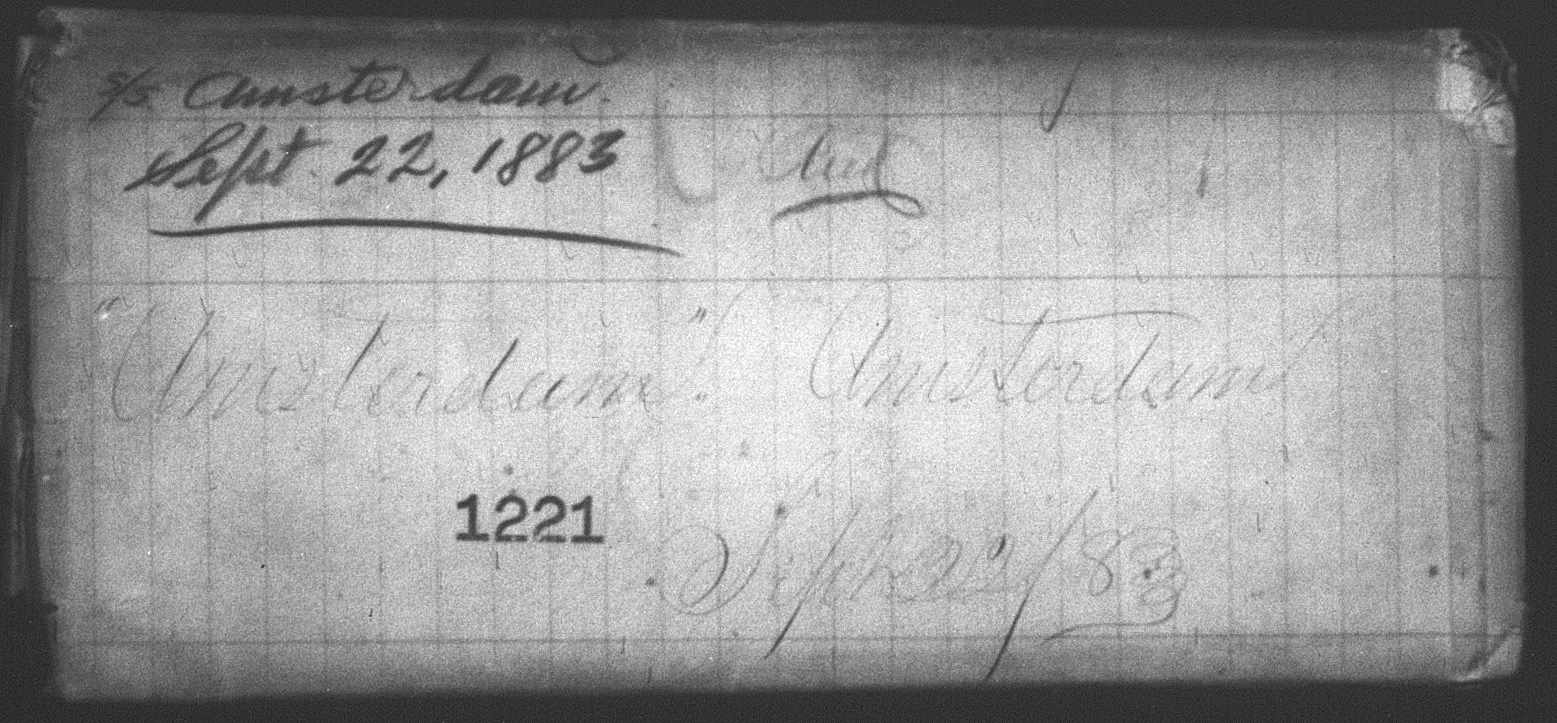 s/s Amsterdam.
Sept. 22, 1883
"Amsterdam". Amsterdam
1221
Sept 22/83